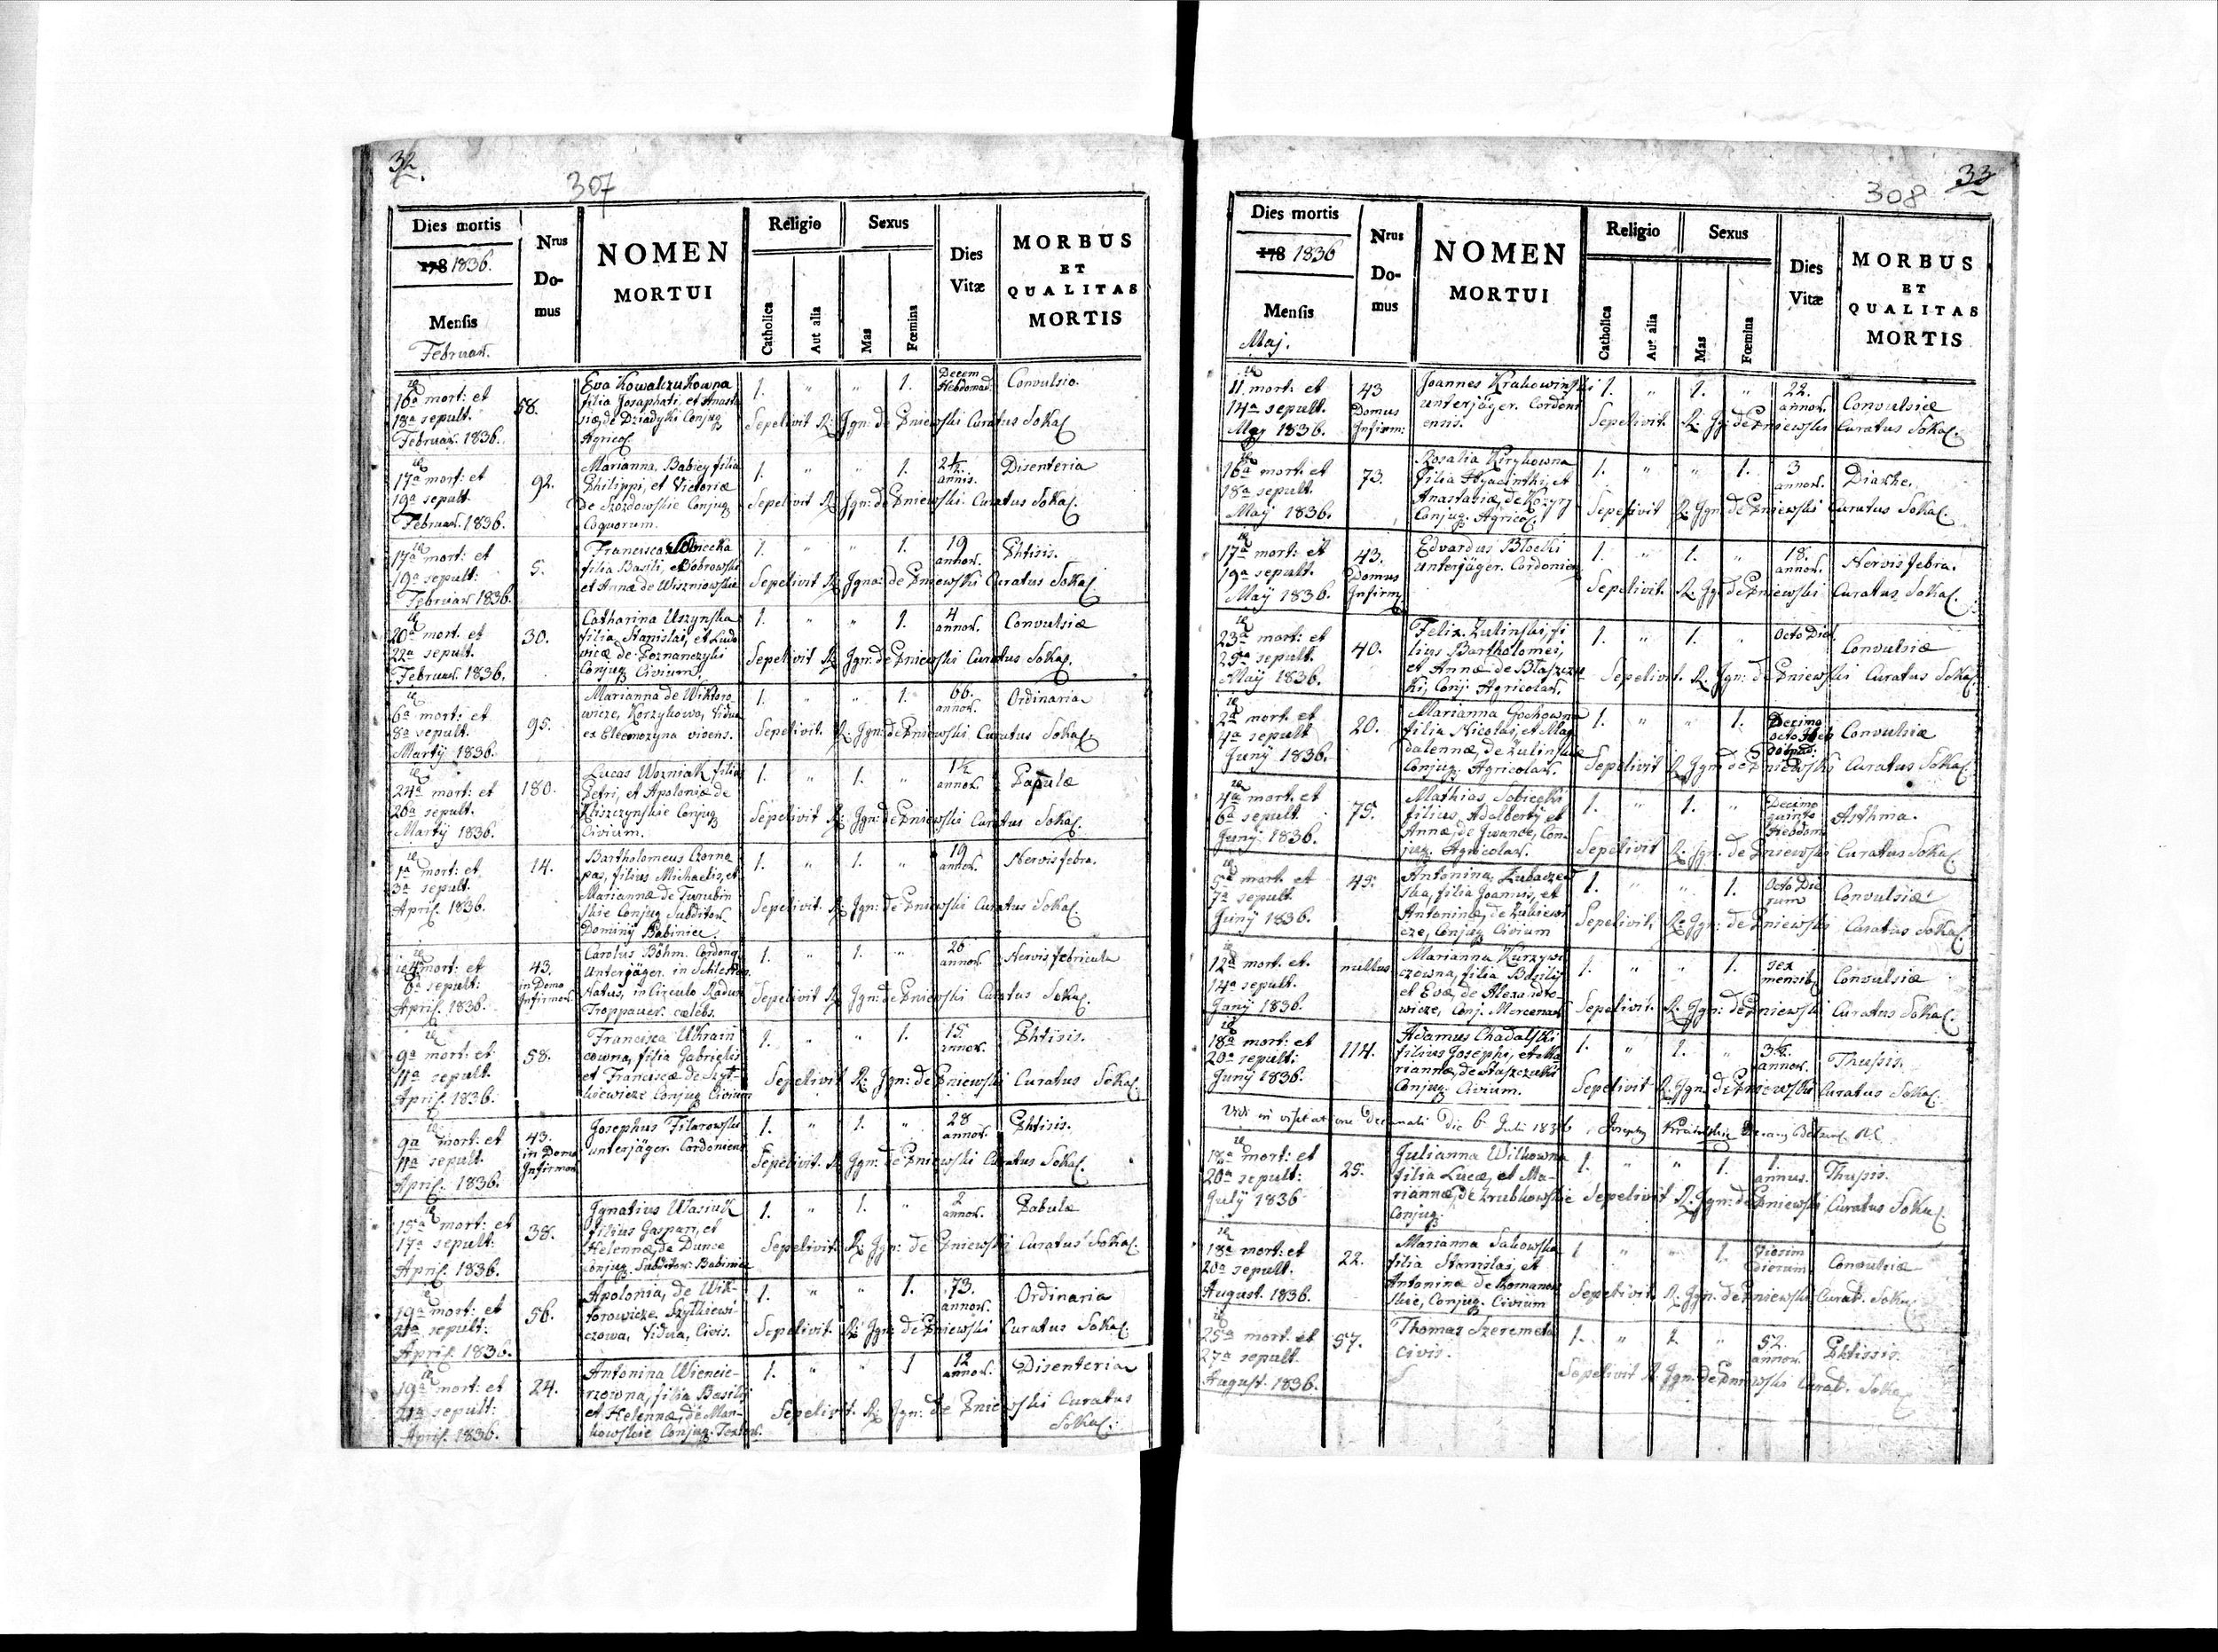 32.
307
Dies mortis
178 1836.
Mensis
Februar.
Nrus
Do-
mus
NOMEN
MORTUI
Religio
Catholica
Aut alia
Sexus
Mas
Fœmina
Dies
Vitæ
MORBUS
ET
QUALITAS
MORTIS
16a mort: et
18a sepult.
Februar. 1836.
58.
Eva Kowalczukowna
filia Josaphati, et Anasta
siæ de Dziadyki Conjug
Agricol
1. " " 1.
Decem
Hebdomad.
Convulsio.
Sepelivit R: Ign: de Pniewski Curatus Sokal.
17a mort: et
19a sepult
Februar. 1836.
92.
Marianna, Babiey filia
Philippi, et Victoriæ
Conjug
Coquorum.
1. " " 1.
2 1/2.
annis.
Disenteria
Sepelivit R: Ign: de Pniewski Curatus Sokal.
17a mort: et
19a sepult:
Februar 1836.
5.
Francisca
filia Basili, et Dobrowski
et Annæ de Wiszniowskie
1. " " 1.
19
annor.
Phtisis.
Sepelivit R: Igna: de Pniewski Curatus Sokal.
20a mort: et
22a sepult.
Februar. 1836.
30.
Catharina Uszynska
filia Stanislai, et Ludo
vicæ de Poznanczyki
Conjug Civium.
1. " " 1.
4
annor.
Convulsiæ
Sepelivit R: Ign: de Pniewski Curatus Sokal.
6a mort: et
8a sepult.
Martÿ 1836.
95.
Marianna de Wiktoro
wicze, Korzykowa, Vidua
ex Eleemozyna vivens.
1. " " 1.
66.
annor.
Ordinaria
Sepelivit. R: Ign: de Pniewski Curatus Sokal.
24a mort: et
26a sepult.
Martÿ 1836.
180.
Lucas Wozniak, filius
Petri, et Apoloniæ de
Conjug
Civium.
1. " 1. "
1 1/2
annor.
Papulæ
Sepelivit R: Ign: de Pniewski Curatus Sokal.
1a mort: et
3a sepult.
April. 1836.
14.
Bartholomeus Czorno
pas, filius Michaelis, et
Mariannæ de Turubin
skie Conjug Subditor.
Dominÿ Babiniec.
1. " 1. "
19
annor.
Nervis febra.
Sepelivit. R: Ign: de Pniewski Curatus Sokal.
4a mort: et
6a sepult:
April. 1836.
43.
in Domo
Infirmor.
Carolus Böhm. Cordong
Unterjäger. in Schlesien
Natus, in Circulo
Troppauer. cælebs.
1. " 1. "
26
annor.
Nervis febricula
Sepelivit R: Ign: de Pniewski Curatus Sokal.
9a mort: et
11a sepult.
April. 1836.
58.
Francisca Ukrain
cowna, filia Gabrielis
et Franciscæ de Szyt-
kiewicze Conjug Civium
1. " " 1.
15.
annor.
Phtisis.
Sepelivit R: Ign: de Pniewski Curatus Sokal.
9a mort: et
11a sepult.
April. 1836.
43.
in Domo
Infirmor
Josephus Filarowski
unterjäger. Cordoniens
1. " 1. "
28
annor.
Phtisis.
Sepelivit. R: Ign: de Pniewski Curatus Sokal.
15a mort: et
17a sepult:
April. 1836.
38.
Ignatius Wasiuk
filius Gaspari, et
Helennæ, de Dunce
Conjug. Subditor. Babiniec
1. " 1. "
2
annor.
Pabulæ
Sepelivit. R: Ign: de Pniewski Curatus Sokal.
19a mort: et
21a sepult:
April. 1836.
56.
Apolonia, de Wik-
torowicze Szytkiewi-
czowa, Vidua, Civis.
1. " " 1.
73.
annor.
Ordinaria
Sepelivit. R: Ign: de Pniewski Curatus Sokal.
19a mort: et
21a sepult:
April. 1836.
24.
Antonina Wiencie-
rzowna, filia Basilÿ
et Helennæ, de Man-
kowskie Conjug: Textor.
1. " " 1
12
annor.
Disenteria
Sepelivit. R: Ign: de Pniewski Curatus
Sokal.
33
308
Dies mortis
178 1836
Mensis
Maj.
Nrus
Do-
mus
NOMEN
MORTUI
Religio
Catholica
Aut alia
Sexus
Mas
Fœmina
Dies
Vitæ
MORBUS
ET
QUALITAS
MORTIS
11. mort: et
14a sepult.
May 1836.
43
Domus
Infirm:
Joannes Krakowinski
unterjäger. Cordoni
ensis.
1. " 1. "
22.
annor.
Convulsiæ
Sepelivit. R: Ig: de Pniewski Curatus Sokal.
16a mort: et
18a sepult.
Maÿ 1836.
73.
Rosalia Kirykowna
filia Hyacinthi, et
Anastasiæ, de Kozyrz
Conjug. Agricol.
1. " " 1.
3
annor.
Diarhe.
Sepelivit R: Ign: de Pniewski Curatus Sokal.
17a mort: et
19a sepult.
Maÿ 1836.
43.
Domus
Infirm
Edvardus Blocki
unterjäger. Cordonien
1. " 1. "
18.
annor.
Nervis febra.
Sepelivit. R: Ig: de Pniewski Curatus Sokal.
23a mort: et
25a sepult.
Maÿ 1836.
40.
Felix. Zulinski, fi
lius Bartholomei,
et Annæ de Błaszczu
ki, Conj: Agricolar.
1. " 1. "
Octo Die.
Convulsiæ
Sepelivit. R: Ign: de Pniewski Curatus Sokal.
2a mort. et
4a sepult
Junÿ 1836.
20.
Marianna Gochowna
filia Nicolai, et Mag
dalennæ, de Zulinskie
Conjug: Agricolar.
1. " " 1.
Decimo
octo Heb
domad.
Convulsiæ
Sepelivit R: Ign: de Pniewski Curatus Sokal.
4a mort. et
6a sepult.
Junÿ 1836.
75.
Mathias Sobiecki
filius, Adalberti, et
Annæ, de Iwance, Con-
jug. Agricolar.
1. " 1. "
Decimo
quinto
Hebdom
Asthma.
Sepelivit R: Ign: de Pniewski Curatus Sokal.
5a mort. et
7a sepult.
Junÿ 1836.
45.
Antonina, Lubaczew
ska, filia Joannis, et
Antoninæ, de Zukiewi
cze, Conjug Civium
1. " " 1.
Octo Die
rum
Convulsiæ
Sepelivit, R: Ign: de Pniewski Curatus Sokal.
12a mort. et.
14a sepult.
Junÿ 1836.
nullus
Marianna Kurzywi
czowna, filia Basilÿ
et Evæ, de Alexandro-
wicze, Conj. Mercenar
1. " " 1.
sex
mensib
Convulsiæ
Sepelivit. R: Ign: de Pniewski Curatus Sokal.
18a mort: et
20a sepult:
Junÿ 1836.
114.
Adamus Chadalski
filius Josephi, et Ma
riannæ, de Staszczukki
Conjug. Civium.
1. " 1. "
3 1/2.
annor.
Thussis.
Sepelivit R: Ign: de Pniewski Curatus Sokal.
Vidi in visitatione Decanali Die 6 Juli 1836 Josephus
18a mort: et
20a sepult:
Julÿ 1836
25.
Julianna Witkowna
filia Lucæ, et Ma-
riannæ, de Zrubkowskie
Conjug.
1. " " 1.
1.
annus.
Thussis.
Sepelivit R: Ign: de Pniewski Curatus Sokal.
18a mort: et
20a sepult.
August. 1836.
22.
Marianna Sakowska
filia Stanislai, et
Antoninæ de Romanow
skie, Conjug. Civium
1 " " 1.
Viesim
dierum
Convulsiæ
Sepelivit R: Ign: de Pniewski Curat. Sokal
25a mort. et
27a sepult.
August. 1836.
57.
Thomas Szeremeta
civis.
1. " 1. "
52.
annor.
Phtissis.
Sepelivit R: Ign: de Pniewski Curat. Sokal